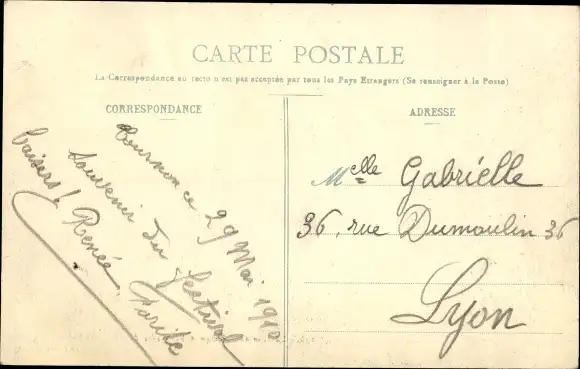 CARTE POSTALE
La Correspondance au recto n'est pas acceptée par tous les Pays Etrangers (Se renseigner à la Poste)
CORRESPONDANCE
Tournon ce 29 Mai 1910
Souvenir du festival
baisers
Renée
ADRESSE
Melle Gabriélle
36, rue Dumoulin 36
Lyon